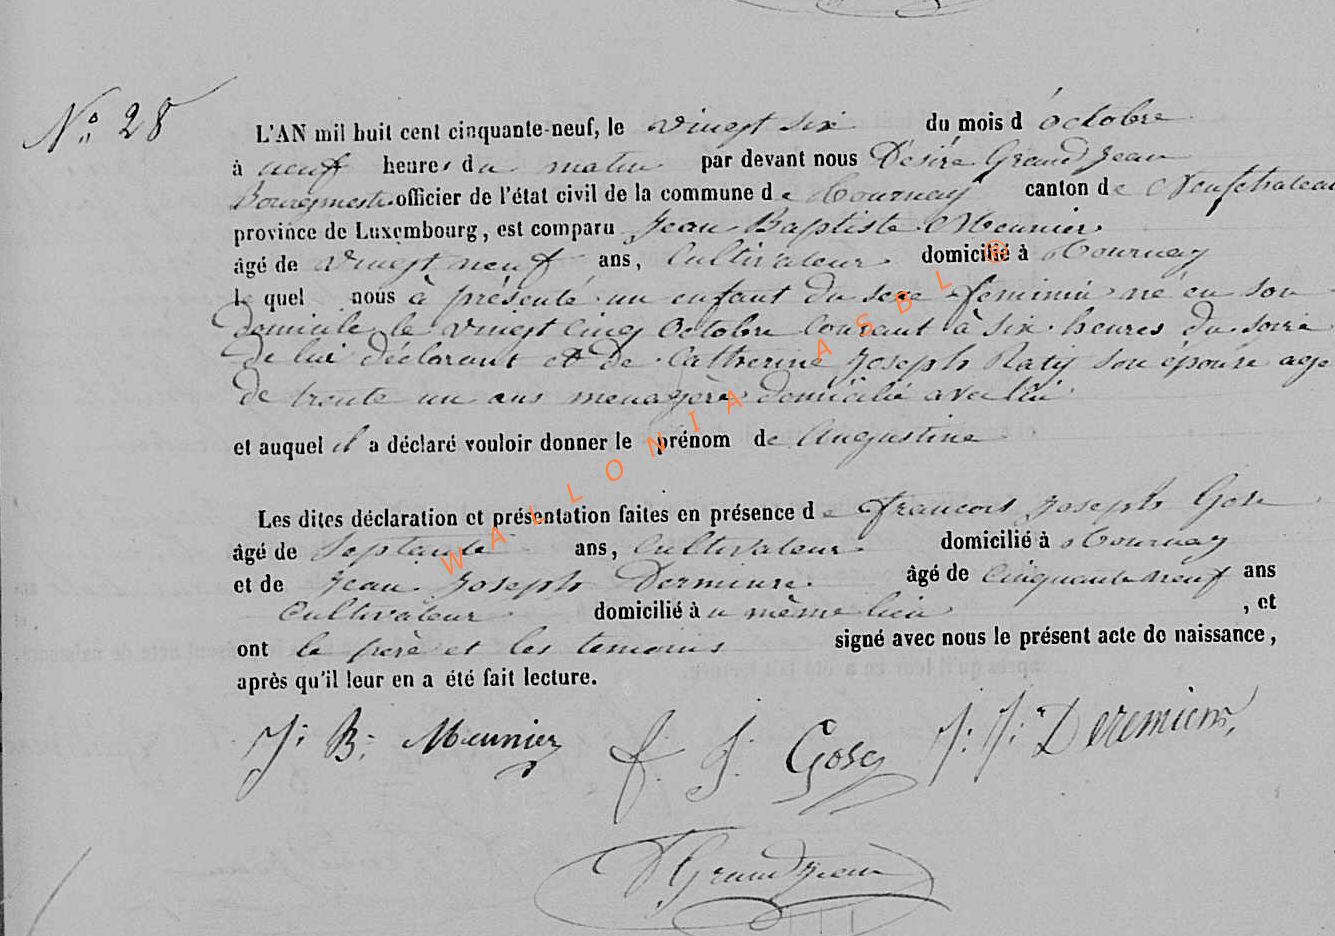 N° 28
L'AN mil huit cent cinquante-neuf, le vingt six du mois d'octobre
à neuf heures du matin par devant nous Désiré Grandjean
Bourgmestre officier de l'état civil de la commune de Tournay canton de Neufchateau
province de Luxembourg, est comparu Jean Baptiste Meunier
âgé de vingt neuf ans, Cultivateur domicilié à Tournay
le quel nous à présenté un enfant du sexe feminin né en son
domicile le vingt cinq Octobre courant à six heures du soire
de lui déclarant et de Catherine Joseph Raty son épouse age
de trente un ans menagère domicilié avec lui
et auquel il a déclaré vouloir donner le prénom de Augustine
Les dites déclaration et présentation faites en présence de francois Joseph
âgé de Septante ans, Cultivateur domicilié à Tournay
et de Jean Joseph âgé de Cinquante neuf ans
Cultivateur domicilié à u même lieu , et
ont le père et les temoins signé avec nous le présent acte de naissance,
après qu'il leur en a été fait lecture.
J: B: Meunier f. J. J: J:
D Grandjean
WALLONIA ASBL ®